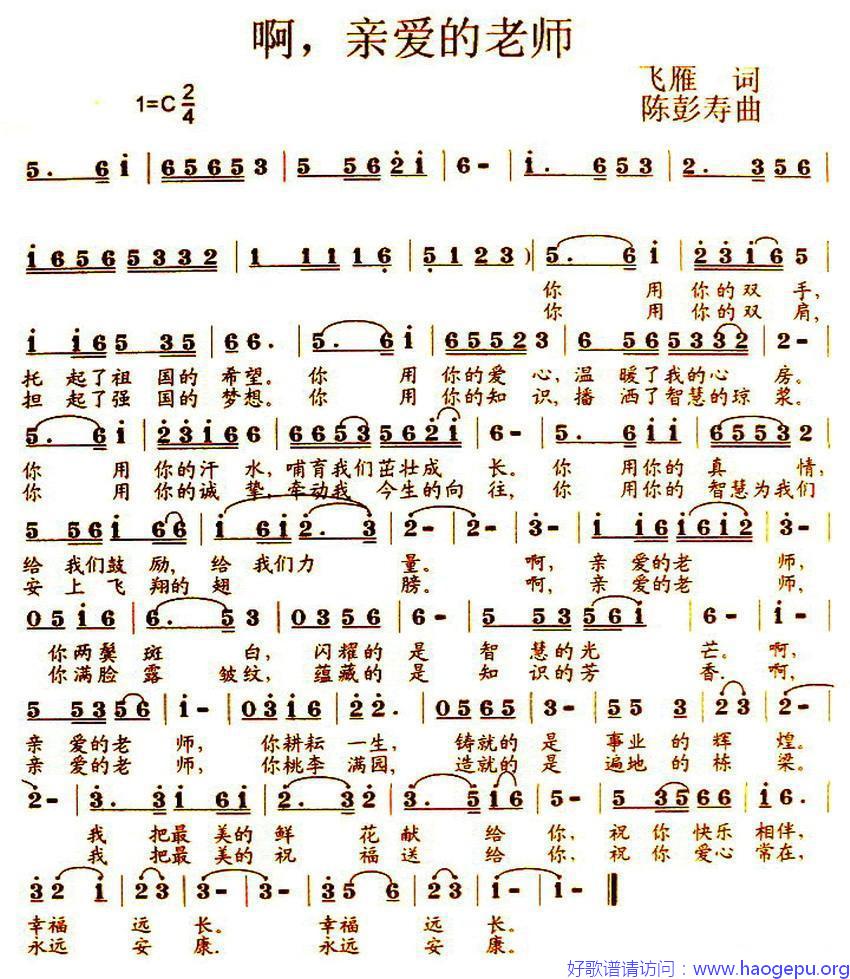 啊，亲爱的老师
飞雁 词
1=C 2/4
陈彭寿曲
5. 6 i | 6 5 6 5 3 | 5 5 6 2 i | 6 - | i. 6 5 3 | 2. 3 5 6 |
i 6 5 6 5 3 3 2 | 1 1 1 1 6 | 5 1 2 3 ) | 5. 6 i | 2 3 i 6 5 |
你 用 你的双 手,
你 用 你的双 肩,
i i 6 5 3 5 | 6 6. | 5. 6 i | 6 5 5 2 3 | 6 5 6 5 3 3 2 | 2 - |
托 起了祖 国的 希望。你 用 你的爱 心,温 暖了我的心 房。
担 起了强 国的 梦想。你 用 你的知 识,播 洒了智慧的琼 浆。
5. 6 i | 2 3 i 6 6 | 6 6 5 3 5 6 2 i | 6 - | 5. 6 i i | 6 5 5 3 2 |
你 用 你的汗 水,哺育我们茁壮成 长。你 用你的 真 情,
你 用 你的诚 挚,牵动我 今生的向 往, 你 用你的 智慧为我们
5 5 6 i 6 6 | i 6 i 2. 3 | 2 - | 2 - | 3 - | i i 6 i 6 i 2 | 3 - |
给 我们鼓 励, 给 我们力 量。 啊, 亲 爱的老 师,
安 上飞 翔的 翅 膀。 啊, 亲 爱的老 师,
0 5 i 6 | 6. 5 3 | 0 3 5 6 | 6 - | 5 5 3 5 6 i | 6 - | i - |
你两鬓 斑 白, 闪耀的 是 智 慧的光 芒。啊,
你满脸 露 皱纹, 蕴藏的 是 知 识的芳 香. 啊,
5 5 3 5 6 | i - | 0 3 i 6 | 2 2. | 0 5 6 5 | 3 - | 5 5 3 | 2 3 | 2 - |
亲 爱的老 师, 你耕耘 一生, 铸就的 是 事业 的 辉 煌。
亲 爱的老 师, 你桃李 满园, 造就的 是 遍地 的 栋 梁。
2 - | 3. 3 i 6 i | 2. 3 2 | 3. 5 i 6 | 5 - | 5 3 5 6 6 | i 6. |
我 把最 美的 鲜 花 献 给 你, 祝 你 快乐 相伴,
我 把最 美的 祝 福 送 给 你, 祝 你 爱心 常在,
3 2 i | 2 3 | 3 - | 3 - | 3 5 6 | 2 3 | i - | i - ‖
幸福 远 长。 幸福 远 长。
永远 安 康。 永远 安 康。
好歌谱请访问：www.haogepu.org